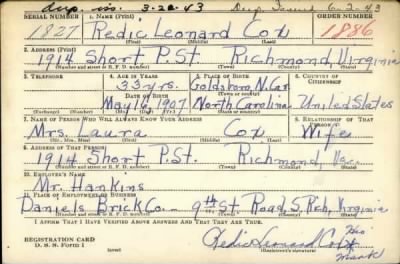 dup. iss. 3-22-43 Dup. Issued 6-2-43
SERIAL NUMBER 1. NAME (Print) ORDER NUMBER
1827 Redic Leonard Cox 1886
(First) (Middle) (Last)
2. ADDRESS (Print)
1914 Short P. St. Richmond, Virginia
(Number and street or R. F. D. number) (Town) (County) (State)
3. TELEPHONE 4. AGE IN YEARS 5. PLACE OF BIRTH 6. COUNTRY OF CITIZENSHIP
33 yrs. Goldsboro N. Car.
DATE OF BIRTH (Town or county)
May 16, 1907 North Carolina United States
(Exchange) (Number) (Mo.) (Day) (Yr.) (State or country)
7. NAME OF PERSON WHO WILL ALWAYS KNOW YOUR ADDRESS 8. RELATIONSHIP OF THAT PERSON
Mrs. Laura Cox Wife
(Mr., Mrs., Miss) (First) (Middle) (Last)
9. ADDRESS OF THAT PERSON
1914 Short P. St. Richmond, Va.
(Number and street or R. F. D. number) (Town) (County) (State)
10. EMPLOYER'S NAME
Mr. Hankins
11. PLACE OF EMPLOYMENT OR BUSINESS
Daniels Brick Co. 9th St Road S. Rich, Virginia
(Number and street or R. F. D. number) (Town) (County) (State)
I AFFIRM THAT I HAVE VERIFIED ABOVE ANSWERS AND THAT THEY ARE TRUE.
REGISTRATION CARD
D. S. S. FORM 1 (over)
Redic Leonard Cox His X Mark
(Registrant's signature)